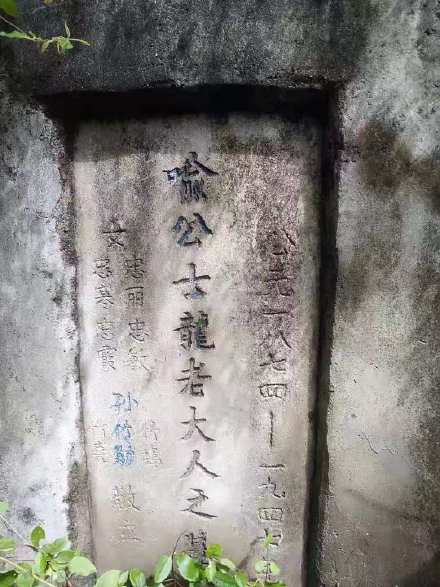 公元一八七四—一九四
喻公士龍老大人之墓
女 忠丽 忠敏
忠 忠霞
孙 竹
敬立